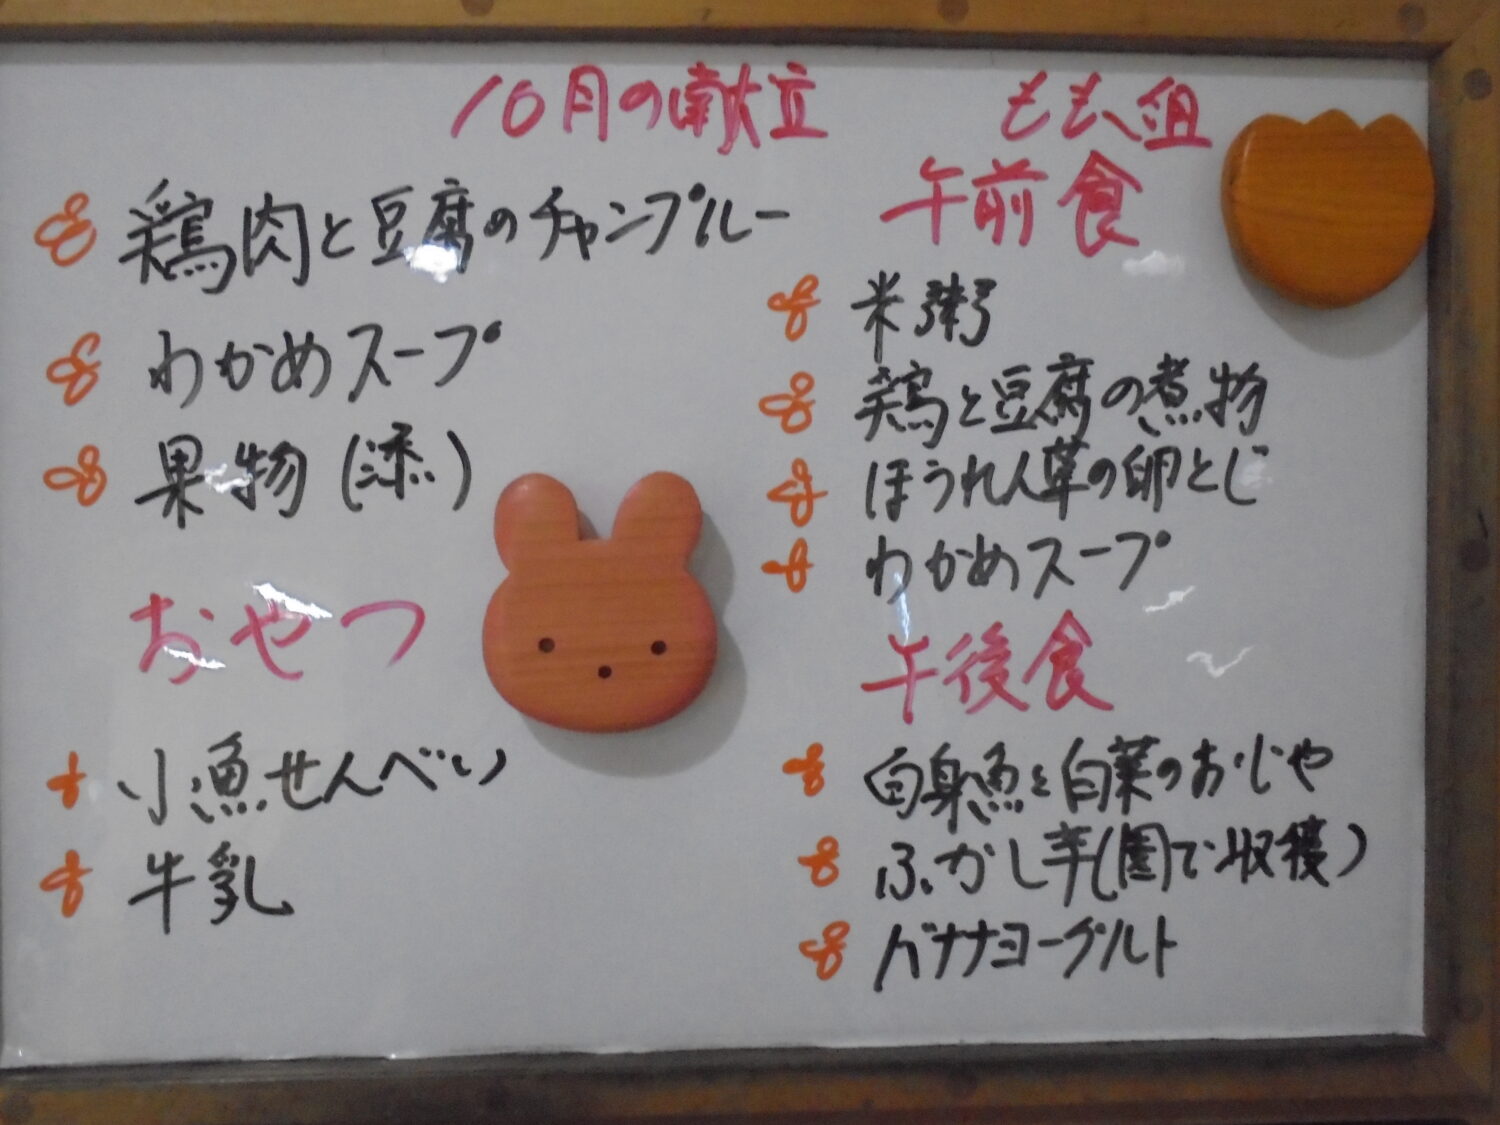 10月の献立
鶏肉と豆腐のチャンプルー
わかめスープ
果物(添)
おやつ
小魚せんべい
牛乳
もも組
午前食
米粥
鶏と豆腐の煮物
ほうれん草の卵とじ
わかめスープ
午後食
白身魚と白菜のおじや
ふかし芋(園で収穫)
バナナヨーグルト